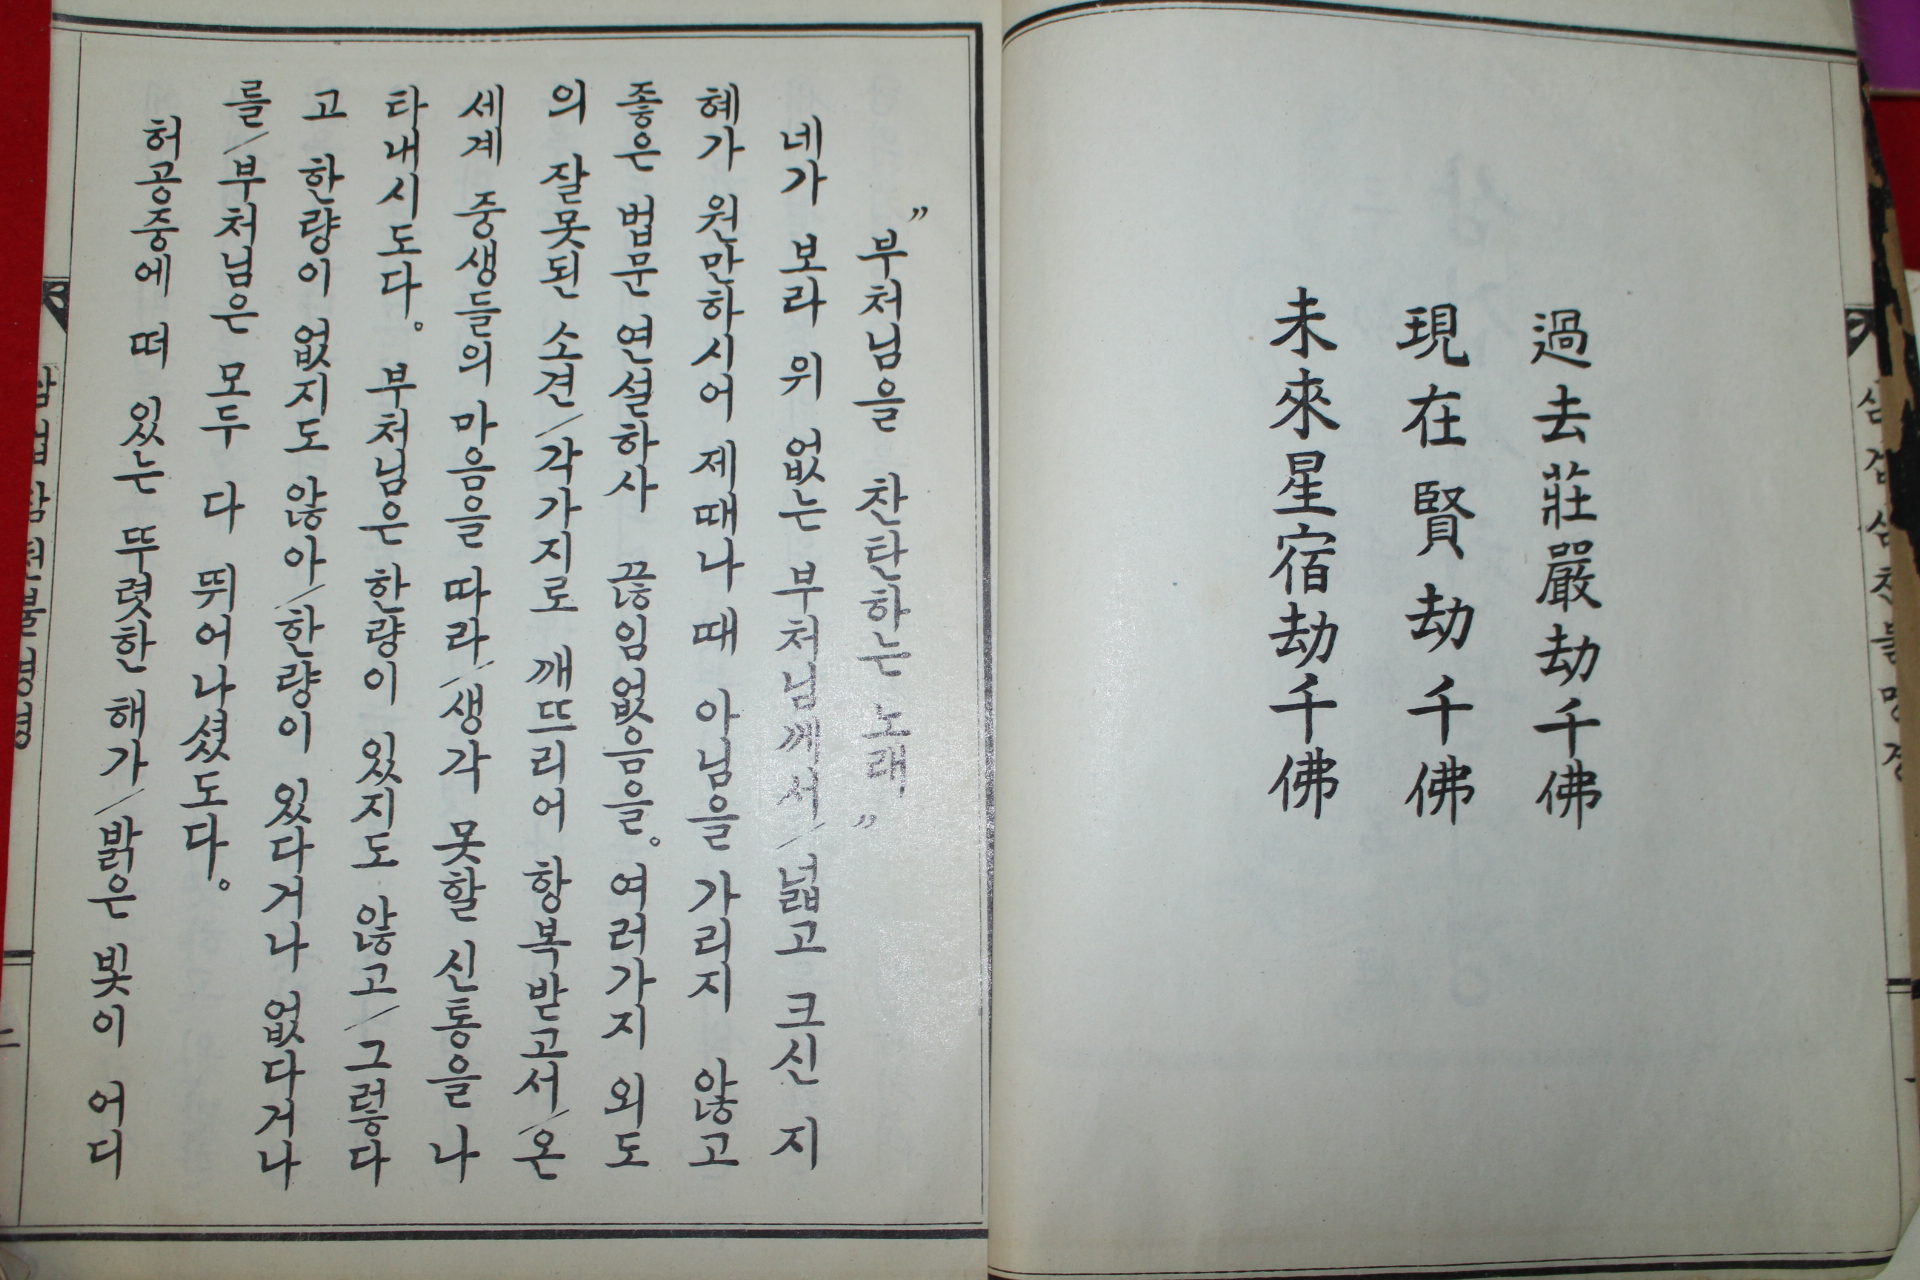 過去莊嚴劫千佛
現在賢劫千佛
未來星宿劫千佛
삼겁삼천불명경
"부처님을 찬탄하는 노래"
네가 보라 위 없는 부처님께서/넓고 크신 지
혜가 원만하시어 제때나 때 아님을 가리지 않고
좋은 법문 연설하사 끊임없음을。여러가지 외도
의 잘못된 소견/각가지로 깨뜨리어 항복받고서/온
세계 중생들의 마음을 따라/생각 못할 신통을 나
타내시도다。 부처님은 한량이 있지도 않고/그렇다
고 한량이 없지도 않아/한량이 있다거나 없다거나
를/부처님은 모두 다 뛰어나셨도다。
허공중에 떠 있는 뚜렷한 해가/밝은 빛이 어디
삼겁삼천불명경